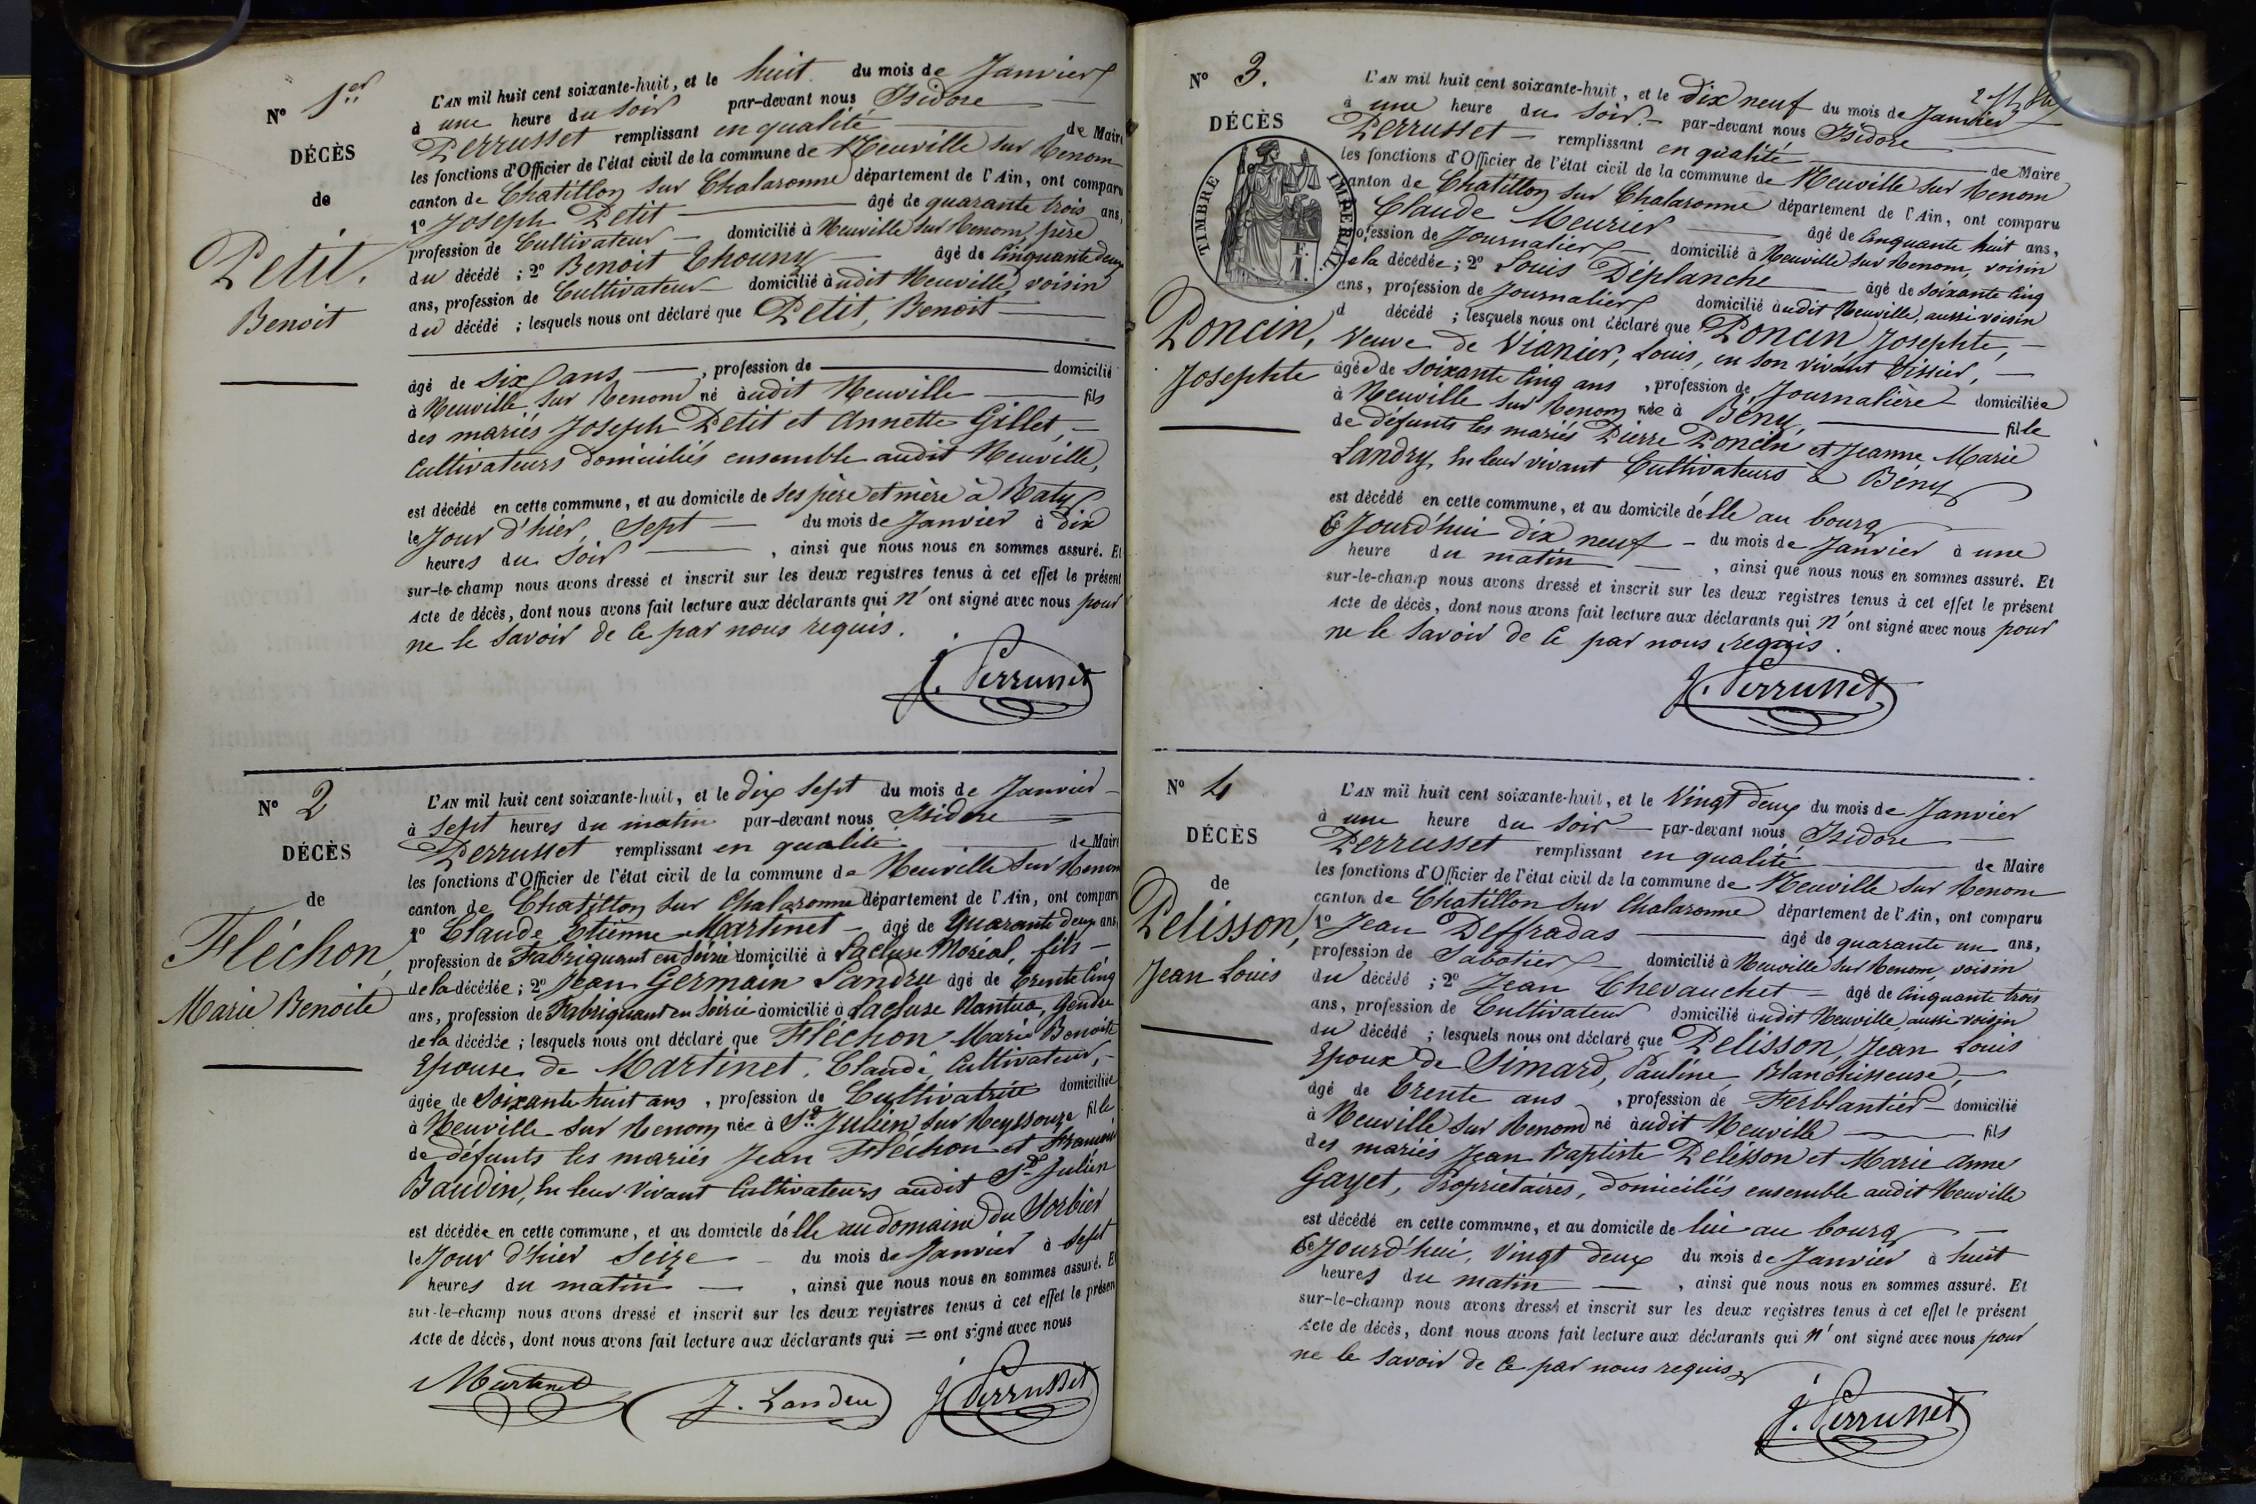 N° 1er
DÉCÈS
de
Petit,
Benoit
L'AN mil huit cent soixante-huit, et le huit du mois de Janvier
à une heure du soir par-devant nous Isidore
Perrusset remplissant en qualité de Maire
les fonctions d'Officier de l'état civil de la commune de Neuville sur Renom
canton de Chatillon sur Chalaronne département de l'Ain, ont comparu
1° Joseph Petit âgé de quarante trois ans,
profession de Cultivateur domicilié à Neuville sur Renom, père
du décédé ; 2° Benoit Thouny âgé de Cinquante deux
ans, profession de Cultivateur domicilié audit Neuville, voisin
du décédé ; lesquels nous ont déclaré que Petit, Benoit
âgé de six ans, profession de domicilié
à Neuville sur Renom né audit Neuville fils
des mariés Joseph Petit et Annette Gillet,
Cultivateurs domiciliés ensemble audit Neuville,
est décédé en cette commune, et au domicile de ses père et mère à Raty
le Jour d'hier, Sept du mois de Janvier à dix
heures du Soir, ainsi que nous nous en sommes assuré. Et
sur-le-champ nous avons dressé et inscrit sur les deux registres tenus à cet effet le présent
Acte de décès, dont nous avons fait lecture aux déclarants qui n'ont signé avec nous pour
ne le savoir de ce par nous requis.
J. Perrusset
N° 2
DÉCÈS
de
Fléchon,
Marie Benoite
L'AN mil huit cent soixante-huit, et le dix sept du mois de Janvier
à sept heures du matin par-devant nous Isidore
Perrusset remplissant en qualité de Maire
les fonctions d'Officier de l'état civil de la commune de Neuville sur Renom
canton de Chatillon sur Chalaronne département de l'Ain, ont comparu
1° Claude Etienne Martinet âgé de Quarante deux ans,
profession de Fabriquant en Soierie domicilié à Lacluse Moréal, fils
de la décédée ; 2° Jean Germain Landru âgé de trente cinq
ans, profession de Fabriquant en Soirie domicilié à Lacluse Nantua, Gendre
de la décédée ; lesquels nous ont déclaré que Fléchon Marie Benoite
Epouse de Martinet, Claude, Cultivateur,
âgée de Soixante huit ans, profession de Cultivatrice domiciliée
à Neuville sur Renom née à St. Julien sur Reyssouze fille
de défunts les mariés Jean Fléchon et
Baudin, en leur vivant Cultivateurs audit St Julien
est décédée en cette commune, et au domicile d'elle au domaine du Sorbier
le Jour d'hier Seize du mois de Janvier à Sept
heures du matin, ainsi que nous nous en sommes assuré. Et
sur-le-champ nous avons dressé et inscrit sur les deux registres tenus à cet effet le présent
Acte de décès, dont nous avons fait lecture aux déclarants qui = ont signé avec nous
Martinet J. Landru J. Perrusset
N° 3.
DÉCÈS
TIMBRE IMPERIAL
Poncin,
Josephte
L'AN mil huit cent soixante-huit, et le Dix neuf du mois de Janvier
à une heure du soir par-devant nous Isidore
Perrusset remplissant en qualité de Maire
les fonctions d'Officier de l'état civil de la commune de Neuville sur Renom
canton de Chatillon sur Chalaronne département de l'Ain, ont comparu
Claude Meurier âgé de Cinquante huit ans,
profession de Journalier domicilié à Neuville sur Renom, voisin
de la décédée ; 2° Louis Déplanche âgé de soixante cinq
ans, profession de Journalier domicilié audit Neuville, aussi voisin
d décédé ; lesquels nous ont déclaré que Poncin Josephte,
Veuve de Vianier, Louis, en son vivant Tissier,
âgée de soixante cinq ans, profession de Journalière domiciliée
à Neuville sur Renom née à Bény, fille
de défunts les mariés Pierre Poncin et Jeanne Marie
Landry, en leur vivant Cultivateurs à Bény
est décédé en cette commune, et au domicile d'elle au bourg
Ce Jourd'hui dix neuf du mois de Janvier à une
heure du matin, ainsi que nous nous en sommes assuré. Et
sur-le-champ nous avons dressé et inscrit sur les deux registres tenus à cet effet le présent
Acte de décès, dont nous avons fait lecture aux déclarants qui n'ont signé avec nous pour
ne le savoir de ce par nous requis.
J. Perrusset
N° 4
DÉCÈS
de
Pelisson,
Jean Louis
L'AN mil huit cent soixante-huit, et le Vingt deux du mois de Janvier
à une heure du soir par-devant nous Isidore
Perrusset remplissant en qualité de Maire
les fonctions d'Officier de l'état civil de la commune de Neuville sur Renom
canton de Chatillon sur Chalaronne département de l'Ain, ont comparu
1° Jean Deffradas âgé de quarante un ans,
profession de Sabotier domicilié à Neuville sur Renom, voisin
du décédé ; 2° Jean Chevauchet âgé de Cinquante trois
ans, profession de Cultivateur domicilié audit Neuville, aussi voisin
du décédé ; lesquels nous ont déclaré que Pelisson, Jean Louis
Epoux de Simard, Pauline, Blanchisseuse,
âgé de trente ans, profession de Ferblantier domicilié
à Neuville sur Renom né audit Neuville fils
des mariés Jean Baptiste Pelisson et Marie Anne
Gayet, Propriétaires, domiciliés ensemble audit Neuville
est décédé en cette commune, et au domicile de lui au bourg
Ce Jourd'hui, Vingt deux du mois de Janvier à huit
heures du matin, ainsi que nous nous en sommes assuré. Et
sur-le-champ nous avons dressé et inscrit sur les deux registres tenus à cet effet le présent
Acte de décès, dont nous avons fait lecture aux déclarants qui n'ont signé avec nous pour
ne le savoir de ce par nous requis
J. Perrusset